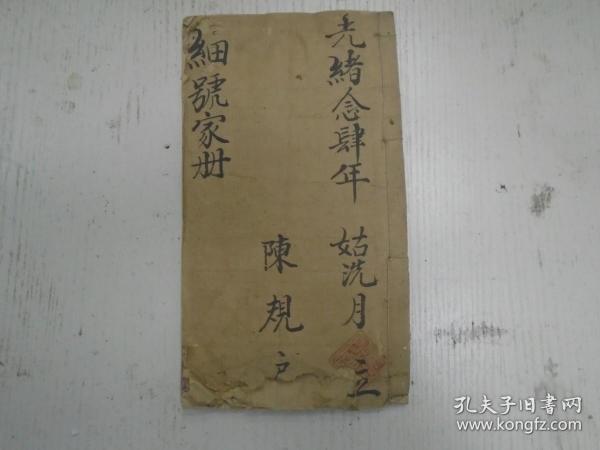 光緒念肆年 姑洗月 立
陳規户
細號家册
孔夫子旧书网
www.kongfz.com